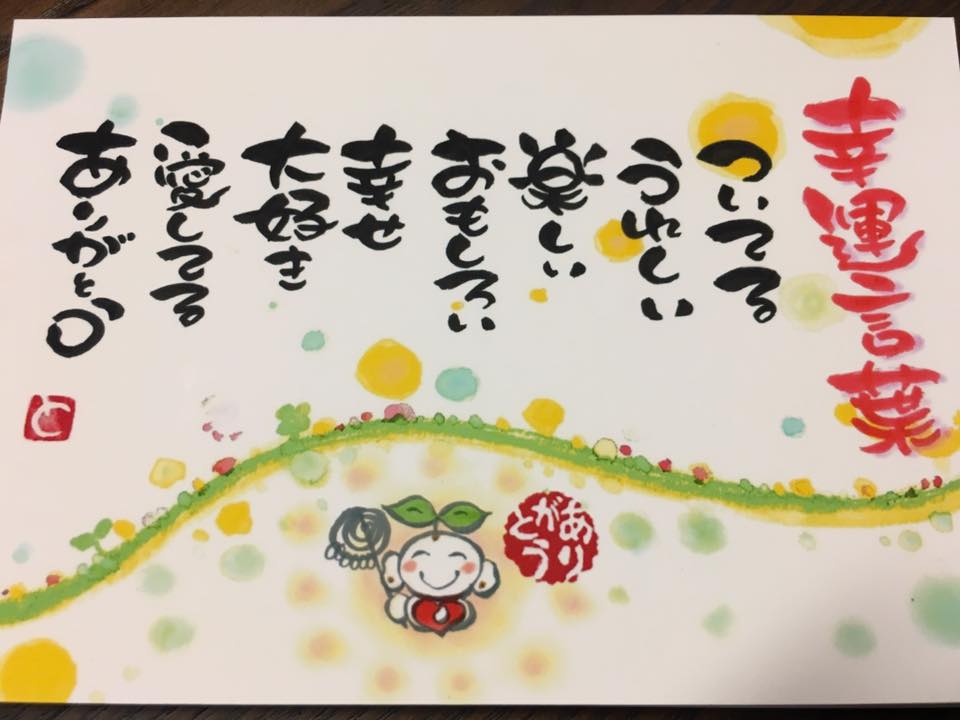 幸運言葉
ついてる
うれしい
楽しい
おもしろい
幸せ
大好き
愛してる
ありがとう
ありがとう